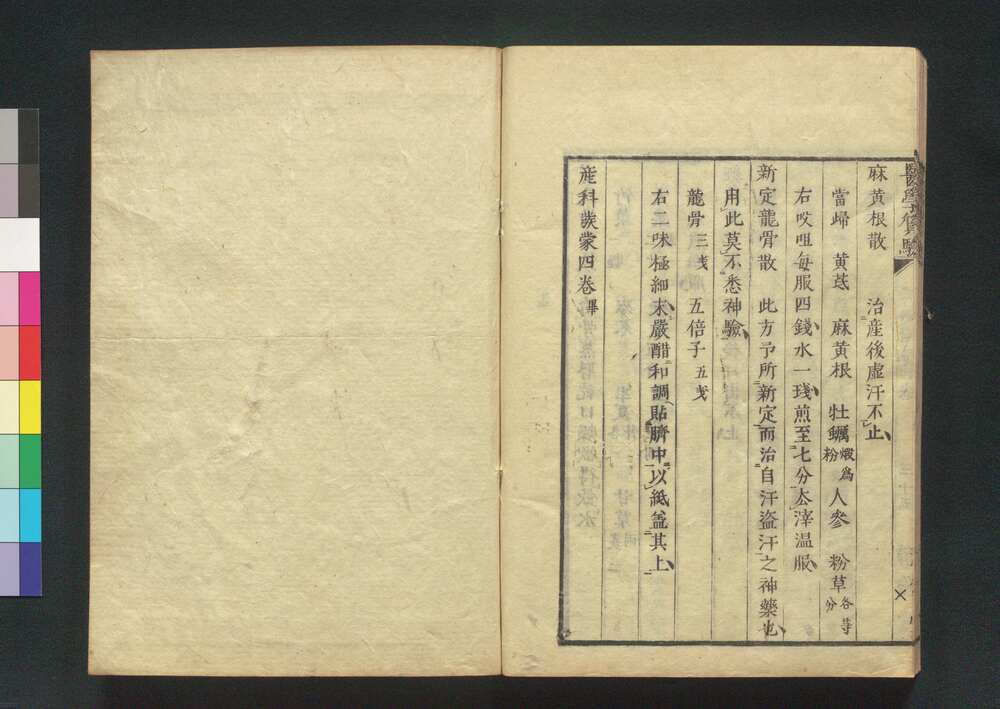 麻黄根散　治産後虚汗不止
當歸　黄芪　麻黄根　牡蠣煅為粉　人參　粉草各等分
右㕮咀毎服四錢水一琖煎至七分去滓温服
新定龍骨散　此方予所新定而治自汗盗汗之神藥也
用此莫不悉神驗
龍骨三戔　五倍子五戔
右二味極細末嚴醋和調貼臍中以紙盖其上
産科發蒙四卷畢